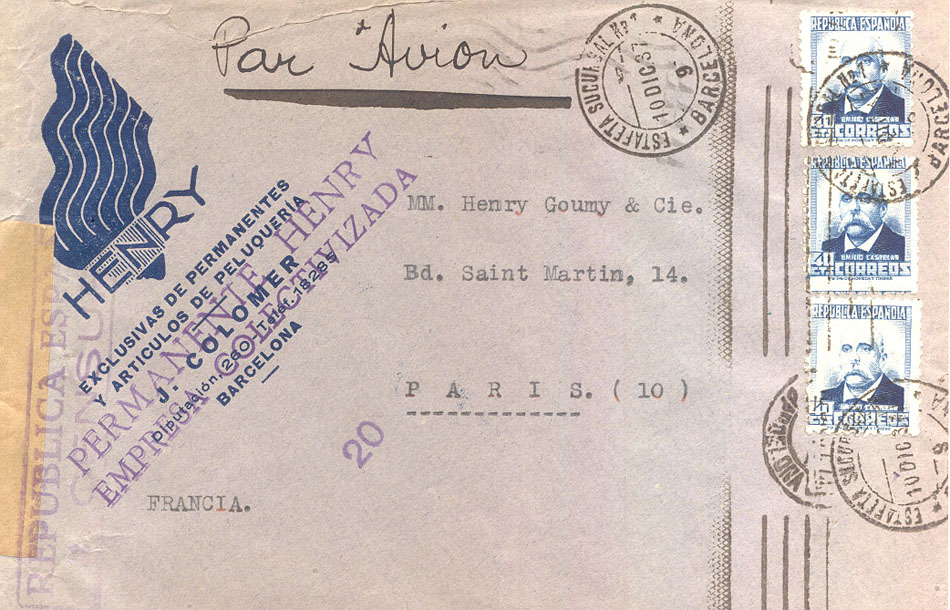 Par Avion
HENRY
EXCLUSIVAS DE PERMANENTES
Y ARTICULOS DE PELUQUERÍA
J. COLOMER
Diputación, 260 Teléf. 18285
BARCELONA
PERMANENTE HENRY
EMPRESA COLECTIVIZADA
20
REPUBLICA ESPA
CENSU
MM. Henry Goumy & Cie.
Bd. Saint Martin, 14.
PARIS. (10)
FRANCIA.
ESTAFETA SUCURSAL Nº 1 * BARCELONA *
10 DIC 37
REPUBLICA ESPAÑOLA
EMILIO CASTELAR
CORREOS
REPUBLICA ESPAÑOLA
40
CTS
EMILIO CASTELAR
CORREOS
REPUBLICA ESPAÑOLA
CORREOS
BARCELONA
ESTAFETA SUCUR
10 DIC 3